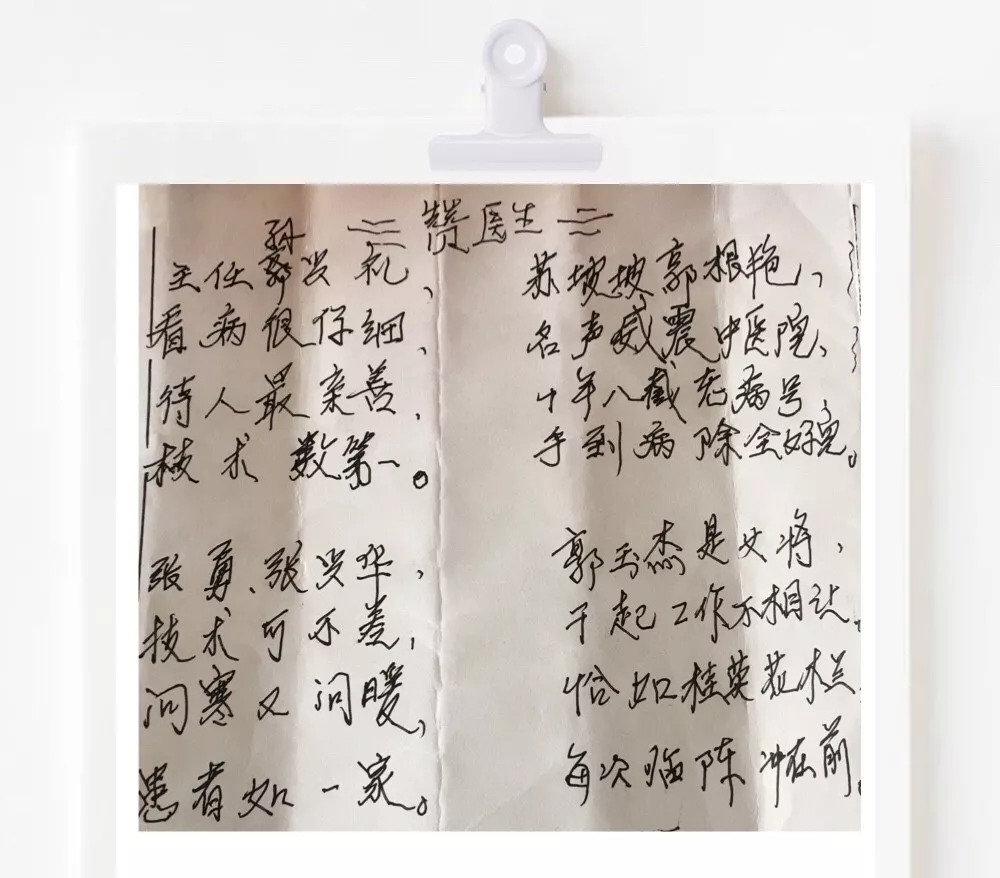 赞医生
孙
主任郭兴礼、
看病很仔细、
待人最亲善、
技术数第一。
张勇、张兴华,
技术可不差,
问寒又问暖,
患者如一家。
苏坡坡郭根艳,
名声威震中医院、
十年八截老病号,
手到病除全好完。
郭玉杰是女将,
干起工作不相让、
恰如桂英花木兰、
每次临阵冲在前。